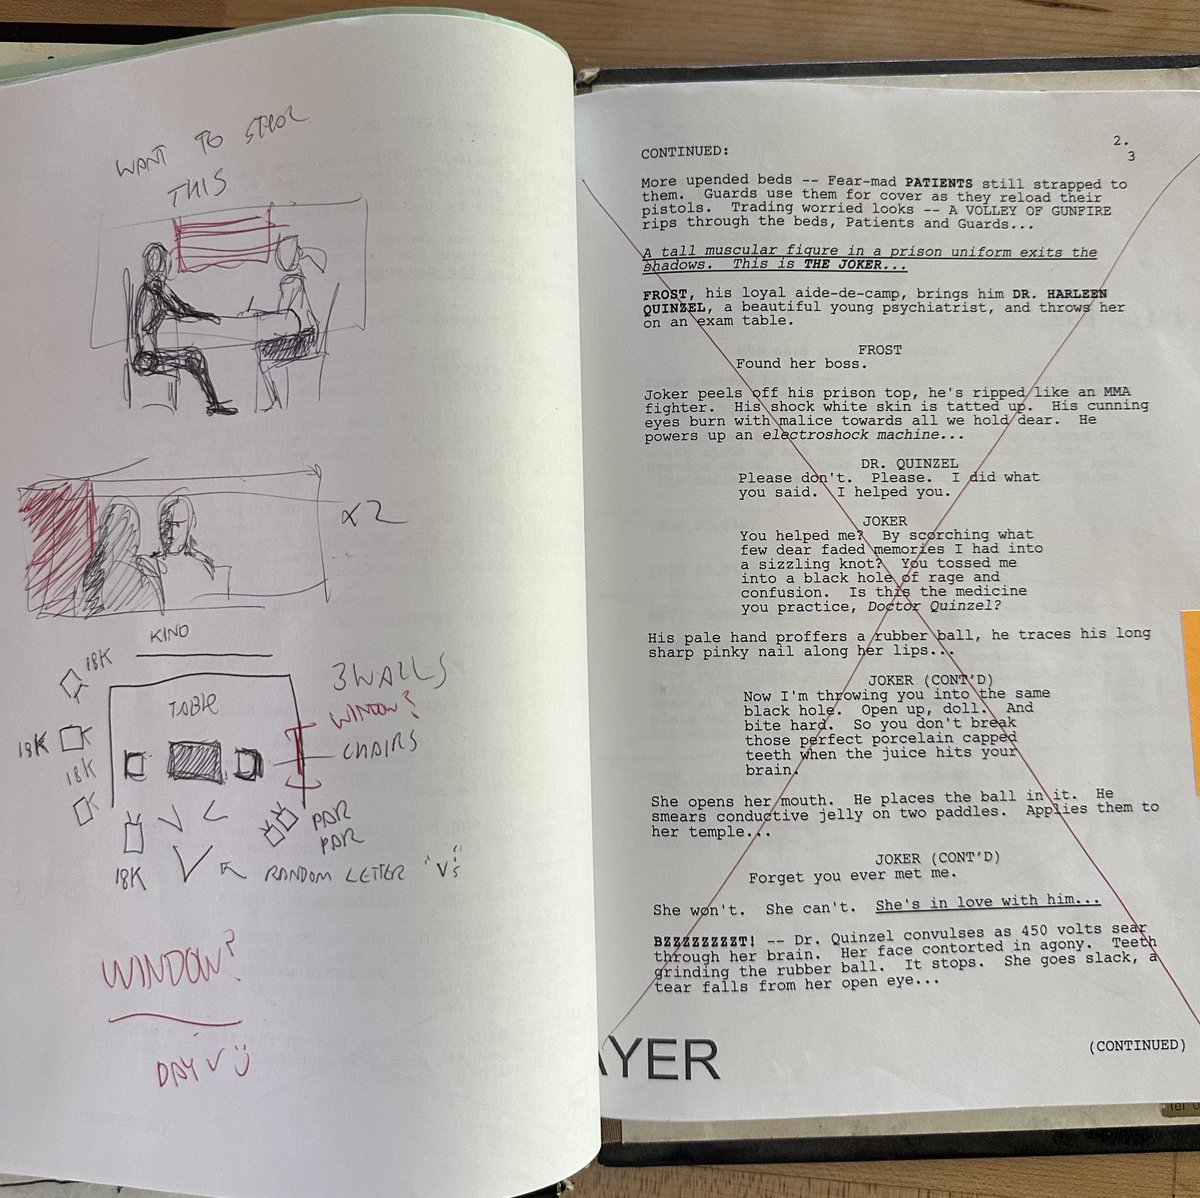 WANT TO SHOOT
THIS
x 2
KINO
18K
3 WALLS
TABLE
WINDOW?
18K
CHAIRS
18K
PAR
PAR
18K
RANDOM LETTER "V's"
WINDOW?
DAY
2.
CONTINUED:
3
More upended beds -- Fear-mad PATIENTS still strapped to
them. Guards use them for cover as they reload their
pistols. Trading worried looks -- A VOLLEY OF GUNFIRE
rips through the beds, Patients and Guards...
A tall muscular figure in a prison uniform exits the
shadows. This is THE JOKER...
FROST, his loyal aide-de-camp, brings him DR. HARLEEN
QUINZEL, a beautiful young psychiatrist, and throws her
on an exam table.
FROST
Found her boss.
Joker peels off his prison top, he's ripped like an MMA
fighter. His shock white skin is tatted up. His cunning
eyes burn with malice towards all we hold dear. He
powers up an electroshock machine...
DR. QUINZEL
Please don't. Please. I did what
you said. I helped you.
JOKER
You helped me? By scorching what
few dear faded memories I had into
a sizzling knot? You tossed me
into a black hole of rage and
confusion. Is this the medicine
you practice, Doctor Quinzel?
His pale hand proffers a rubber ball, he traces his long
sharp pinky nail along her lips...
JOKER (CONT'D)
Now I'm throwing you into the same
black hole. Open up, doll. And
bite hard. So you don't break
those perfect porcelain capped
teeth when the juice hits your
brain.
She opens her mouth. He places the ball in it. He
smears conductive jelly on two paddles. Applies them to
her temple...
JOKER (CONT'D)
Forget you ever met me.
She won't. She can't. She's in love with him...
BZZZZZZZZT! -- Dr. Quinzel convulses as 450 volts sear
through her brain. Her face contorted in agony. Teeth
grinding the rubber ball. It stops. She goes slack, a
tear falls from her open eye...
(CONTINUED)
AYER